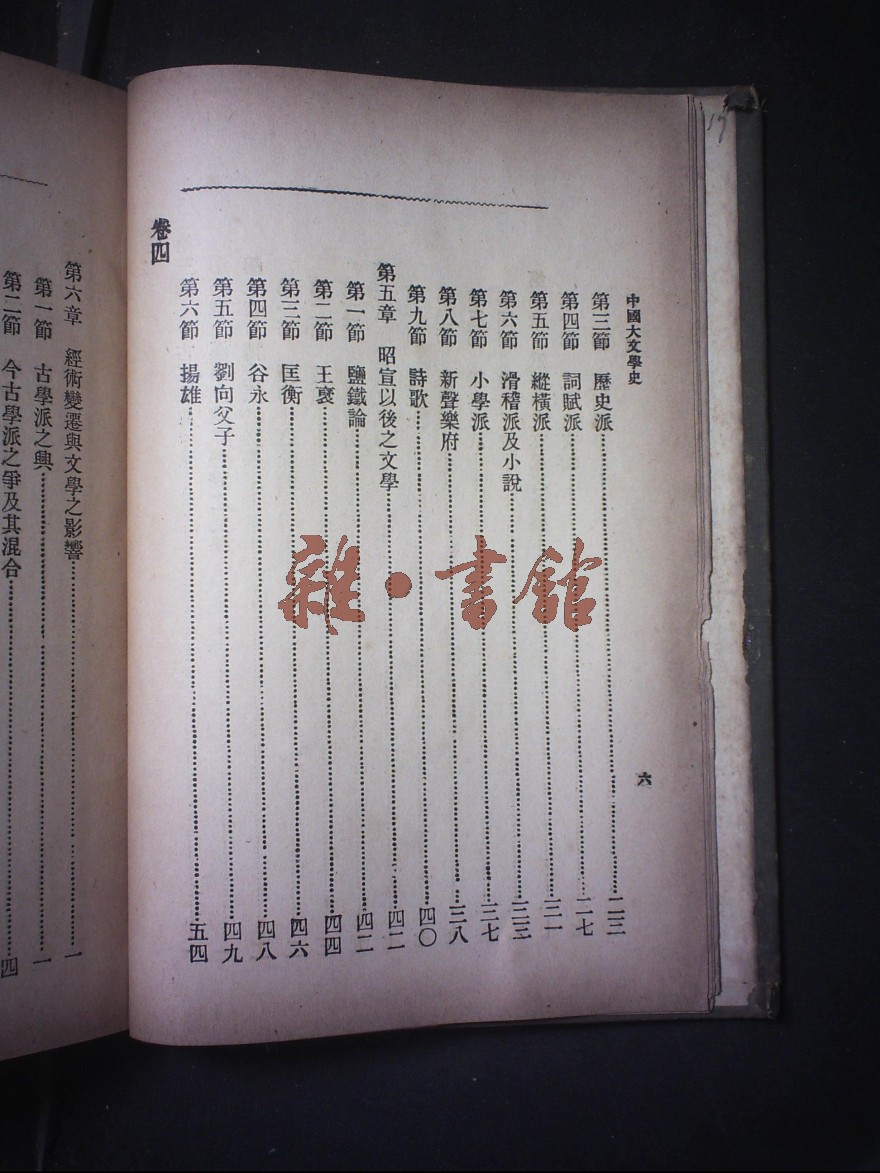 中國大文學史
六
第三節 歷史派 二三
第四節 詞賦派 二七
第五節 縱橫派 三一
第六節 滑稽派及小說 三三
第七節 小學派 三七
第八節 新聲樂府 三八
第九節 詩歌 四〇
第五章 昭宣以後之文學 四二
第一節 鹽鐵論 四二
第二節 王裦 四四
第三節 匡衡 四六
第四節 谷永 四八
第五節 劉向父子 四九
第六節 揚雄 五四
卷四
第六章 經術變遷與文學之影響 一
第一節 古學派之興 一
第二節 今古學派之爭及其混合 四
雜·書館